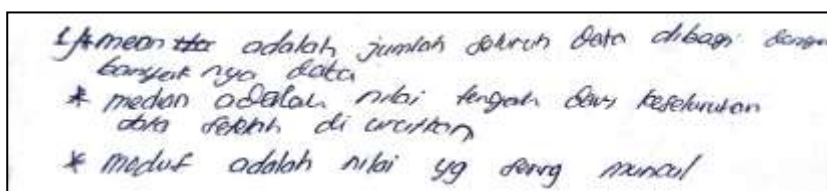 1/* mean adalah jumlah seluruh data dibagi dengan
banyak nya data
* median adalah nilai tengah dari keseluruhan
data setelah di urutkan
* modus adalah nilai yg sering muncul